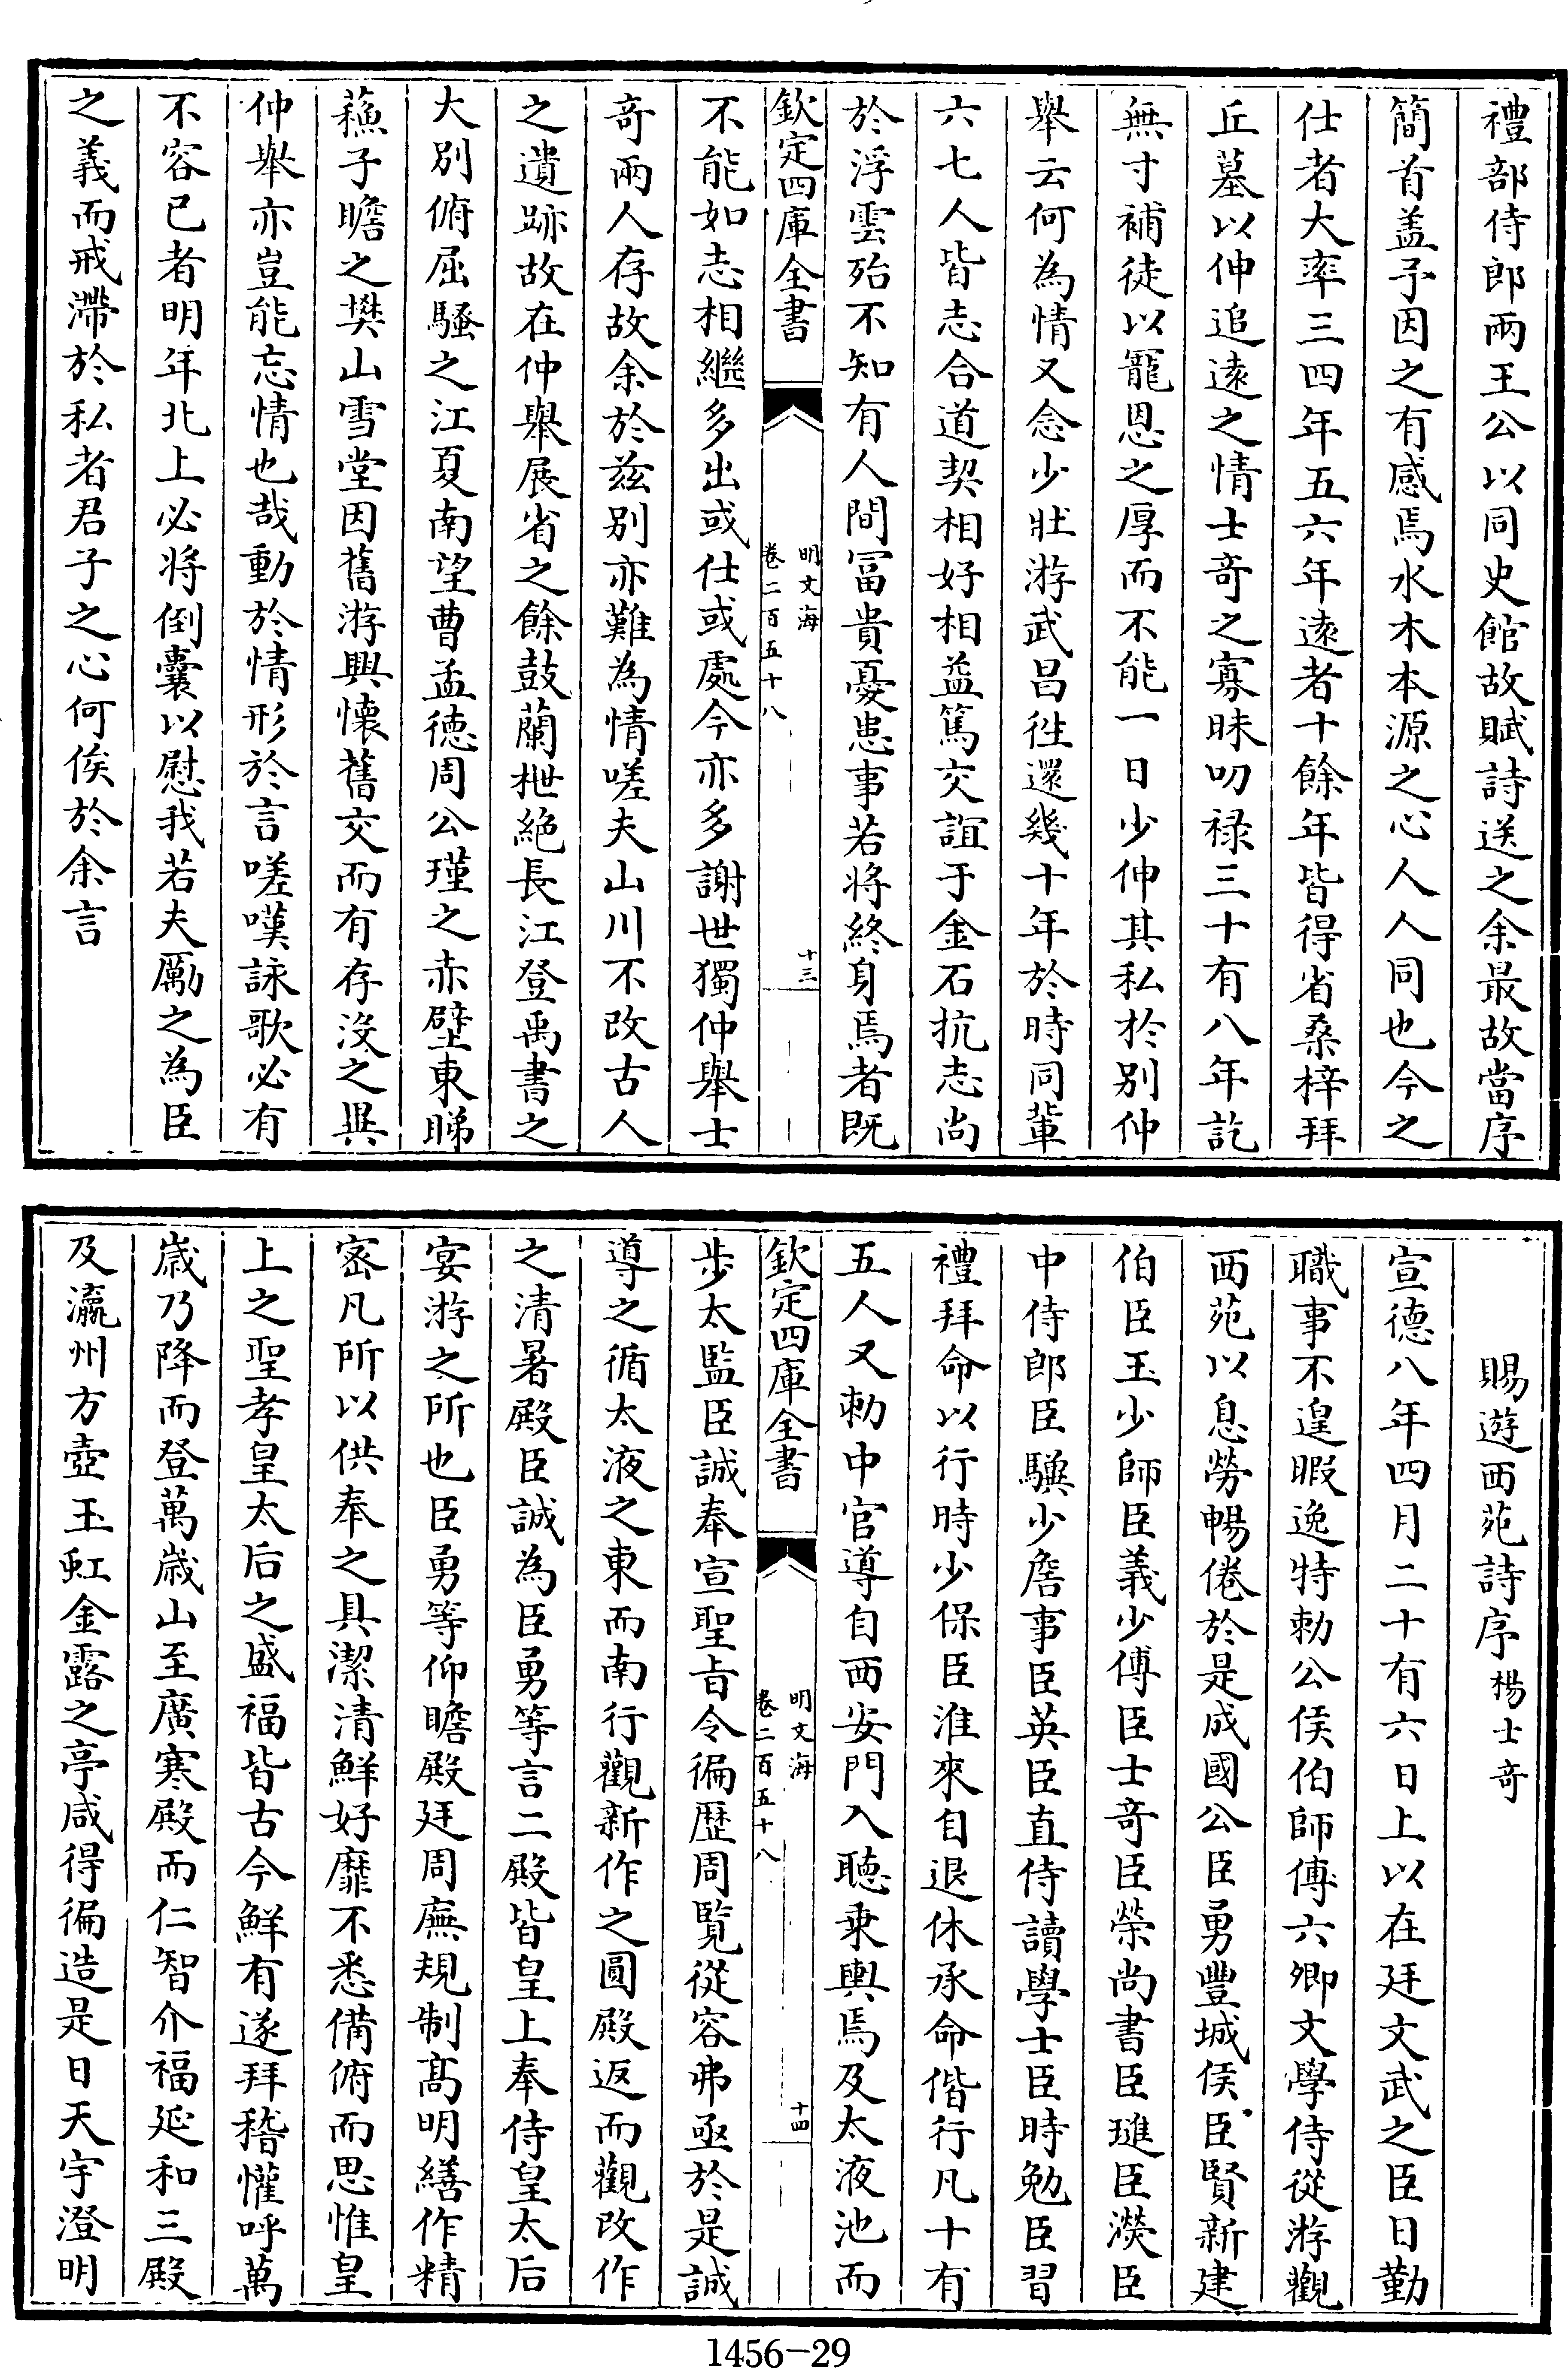 禮部侍郎兩王公以同史館故賦詩送之余最故當序
簡首盖予因之有感焉水木本源之心人人同也今之
仕者大率三四年五六年逺者十餘年皆得省桑梓拜
丘墓以伸追逺之情士竒之寡昧叨禄三十有八年訖
無寸補徒以寵恩之厚而不能一日少伸其私於别仲
舉云何為情又念少壯游武昌往還幾十年於時同輩
六七人皆志合道契相好相益篤交誼于金石抗志尚
於浮雲殆不知有人間冨貴憂患事若将終身焉者既
欽定四庫全書
明文海
卷二百五十八
十三
不能如志相繼多出或仕或處今亦多謝世獨仲舉士
竒兩人存故余於兹别亦難為情嗟夫山川不改古人
之遺跡故在仲舉展省之餘鼓蘭枻絶長江登禹書之
大别俯屈騷之江夏南望曹孟德周公瑾之赤壁東睇
蘓子瞻之樊山雪堂因舊游興懐舊交而有存沒之異
仲舉亦豈能忘情也哉動於情形於言嗟嘆詠歌必有
不容已者明年北上必将倒囊以慰我若夫勵之為臣
之義而戒滯於私者君子之心何俟於余言
賜遊西苑詩序楊士竒
宣德八年四月二十有六日上以在廷文武之臣日勤
職事不遑暇逸特勅公侯伯師傅六卿文學侍從游觀
西苑以息勞暢倦於是成國公臣勇豐城侯臣賢新建
伯臣玉少師臣義少傅臣士竒臣榮尚書臣璡臣濙臣
中侍郎臣驥少詹事臣英臣直侍讀學士臣時勉臣習
禮拜命以行時少保臣淮來自退休承命偕行凡十有
五人又勅中官導自西安門入聽乗輿焉及太液池而
欽定四庫全書
明文海
卷二百五十八
十四
步太監臣誠奉宣聖旨令徧歴周覧從容弗亟於是誠
導之循太液之東而南行觀新作之圓殿返而觀改作
之清暑殿臣誠為臣勇等言二殿皆皇上奉侍皇太后
宴游之所也臣勇等仰瞻殿廷周廡規制髙明繕作精
宻凡所以供奉之具潔清鮮好靡不悉備俯而思惟皇
上之聖孝皇太后之盛福皆古今鮮有遂拜稽懽呼萬
嵗乃降而登萬嵗山至廣寒殿而仁智介福延和三殿
及瀛州方壺玉虹金露之亭咸得徧造是日天宇澄明
1456-29